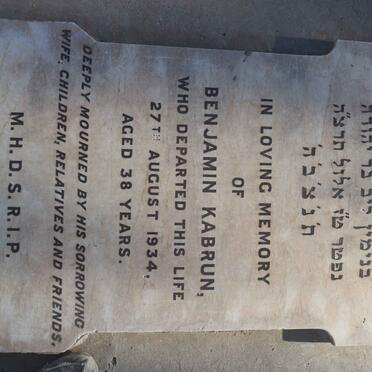 בנימין ליב בר יהודה
נפטר ט״ז אלול
ת׳נ׳צ׳ב׳ה׳
IN LOVING MEMORY
OF
BENJAMIN KABRUN,
WHO DEPARTED THIS LIFE
27TH AUGUST 1934,
AGED 38 YEARS.
DEEPLY MOURNED BY HIS SORROWING
WIFE, CHILDREN, RELATIVES AND FRIENDS.
M.H.D.S.R.I.P.